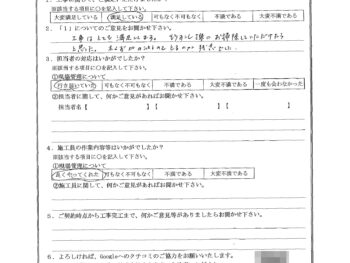 ※該当する項目に○を記入して下さい。
大変満足している 満足している 可もなく不可もなく 不満である 大変不満である
2．「１」についてのご意見をお聞かせ下さい。
工事はとても満足してます。
3．担当者の対応はいかがでしたか？
※該当する項目に○を記入して下さい。
①現場管理について
行き届いていた 可もなく不可もなく 不満である 大変不満である 一度も会わなかった
②担当者に関して、何かご意見があればお聞かせ下さい。
担当者名【 】【 】【 】
4．施工員の作業内容等はいかがでしたか？
※該当する項目に○を記入して下さい。
①現場管理について
良くやってくれた 可もなく不可もなく 不満である 大変不満である
②施工員に関して、何かご意見があればお聞かせ下さい。
5．ご契約時点から工事完工まで、何かご意見等がありましたらお聞かせ下さい。
6．よろしければ、Googleへのクチコミのご協力をお願いいたします。